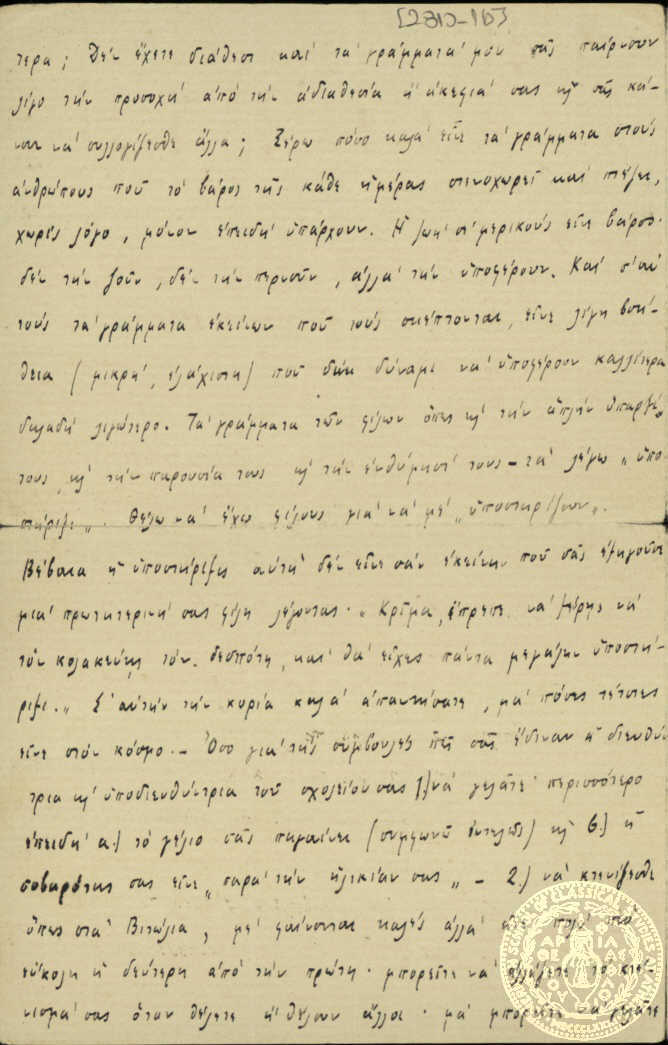 [2813-16]
τερα; Δὲν ἔχετε διάθεσι καὶ τὰ γράμματά μου σᾶς παίρνουν
λίγο τὴν προσοχὴ ἀπὸ τὴν ἀδιαθεσία ἢ ἀκεφιά σας κὴ σᾶς κά-
νουν νὰ συλλογίζεσθε ἄλλα; Ξέρω πόσο καλὰ εἶνε τὰ γράμματα στοὺς
ἀνθρώπους ποῦ τὸ βάρος τῆς κάθε ἡμέρας στενοχωρεῖ καὶ πιέζει,
χωρὶς λόγο, μόνον ἐπειδὴ ὑπάρχουν. Ἡ ζωὴ σὲ μερικοὺς εἶνε βάρος·
δὲν τὴν ζοῦν, δὲν τὴν περνοῦν, ἀλλὰ τὴν ὑποφέρουν. Καὶ σ' αὐ
τοὺς τὰ γράμματα ἐκείνων ποῦ τοὺς σκέπτονται, εἶνε λίγη βοή-
θεια (μικρή, ἐλάχιστη) ποῦ δίνει δύναμι νὰ ὑποφέρουν καλλίτερα
δηλαδὴ λιγώτερο. Τὰ γράμματα τῶν φίλων ὅπως κὴ τὴν ἁπλῆν ὕπαρξί
τους, κὴ τὴν παρουσία τους κὴ τὴν ἐνθύμησί τους – τὰ λέγω „ὑπο
στήριξι„. Θέλω νὰ ἔχω φίλους γιὰ νὰ μὲ „ὑποστηρίζουν„.
Βέβαια ἡ ὑποστήριξις αὐτὴ δὲν εἶνε σὰν ἐκείνην ποῦ σᾶς ἐξηγοῦσε
μιὰ πρωτητερινή σας φίλη λέγοντας· „Κρῖμα, ἔπρεπε νὰ ξέρῃς νὰ
τὸν κολακεύῃς τὸν δεσπότη, καὶ θὰ εἶχες πάντα μεγάλην ὑποστή-
ριξι.„ Σ' αὐτὴν τὴν κυρία καλὰ ἀπαντήσατε, μὰ πόσες τέτοιες
εἶνε στὸν κόσμο. – Ὅσο γιὰ τῆς συμβουλὲς ποῦ σᾶς ἔδιναν ἡ διευθύν
τρια κὴ ὑποδιευθύντρια τοῦ σχολείου σας 1) νὰ γελᾶτε περισσότερο
ἐπειδὴ α.) τὸ γέλιο σᾶς πηγαίνει (συμφωνῶ ἐντελῶς) κὴ β.) ἡ
σοβαρότης σας εἶνε „παρὰ τὴν ἡλικίαν σας„ – 2.) νὰ κτενίζεσθε
ὅπως στὰ Βιτώλια, μὲ φαίνονται καλὲς ἀλλὰ εἶνε πολὺ πιὸ
εὔκολη ἡ δεύτερη ἀπὸ τὴν πρώτη· μπορεῖτε νὰ ἀλλάξετε τὸ κτέ-
νισμά σας ὅταν θέλετε κὴ θέλουν ἄλλοι· μὰ μπορεῖτε νὰ γελᾶτε